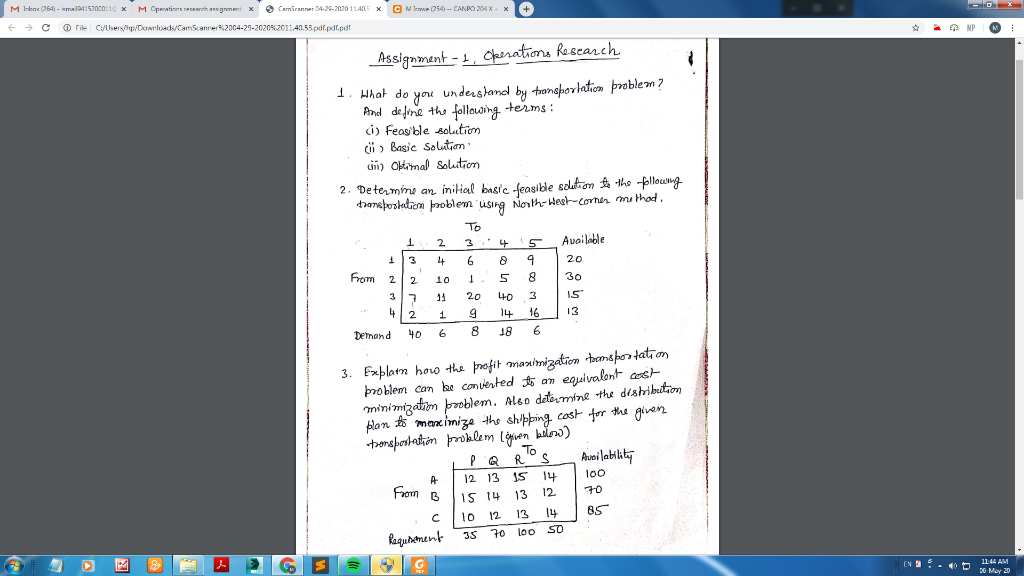 Inbox (264) - ismail494152000110
Operations research assignment
CamScanner 04-29-2020 11.40.5
M Irowe (254) -- CANPO 204 X -
File C:/Users/hp/Downloads/CamScanner%2004-29-2020%2011.40.53.pdf.pdf.pdf
NP M
Assignment - 1, Operations Research
1. What do you understand by transportation problem?
And define the following terms:
(i) Feasible solution
(ii) Basic Solution
(iii) Optimal Solution
2. Determine an initial basic feasible solution to the following
transportation problem using North-West-corner method.
To
1 2 3 4 5 Available
1 3 4 6 8 9 20
From 2 2 10 1 5 8 30
3 7 11 20 40 3 15
4 2 1 9 14 16 13
Demand 40 6 8 18 6
3. Explain how the profit maximization transportation
problem can be converted to an equivalent cost
minimization problem. Also determine the distribution
plan to maximize the shipping cost for the given
transportation problem (given below)
To
P Q R S Availability
A 12 13 15 14 100
From B 15 14 13 12 70
C 10 12 13 14 85
Requirement 35 70 100 50
EN
11:44 AM
06-May-20